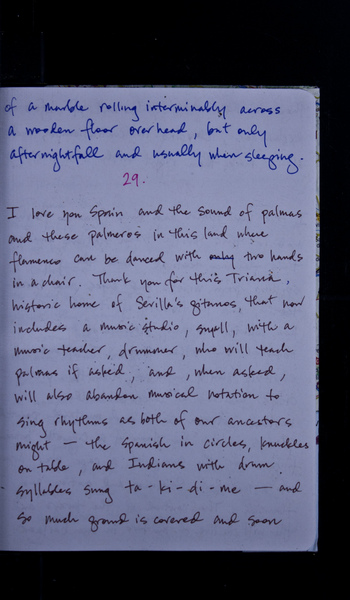 of a marble rolling interminably across
a wooden floor overhead, but only
after nightfall and usually when sleeping.
29.
I love you Spain and the sound of palmas
and these palmeros in this land where
flamenco can be danced with only two hands
in a chair. Thank you for this Triana,
historic home of Sevilla's gitanos, that now
includes a music studio, small, with a
music teacher, drummer, who will teach
palmas if asked, and, when asked,
will also abandon musical notation to
sing rhythms as both of our ancestors
might — the Spanish in circles, knuckles
on table, and Indians with drum
syllables sung ta-ki-di-me — and
so much ground is covered and soon